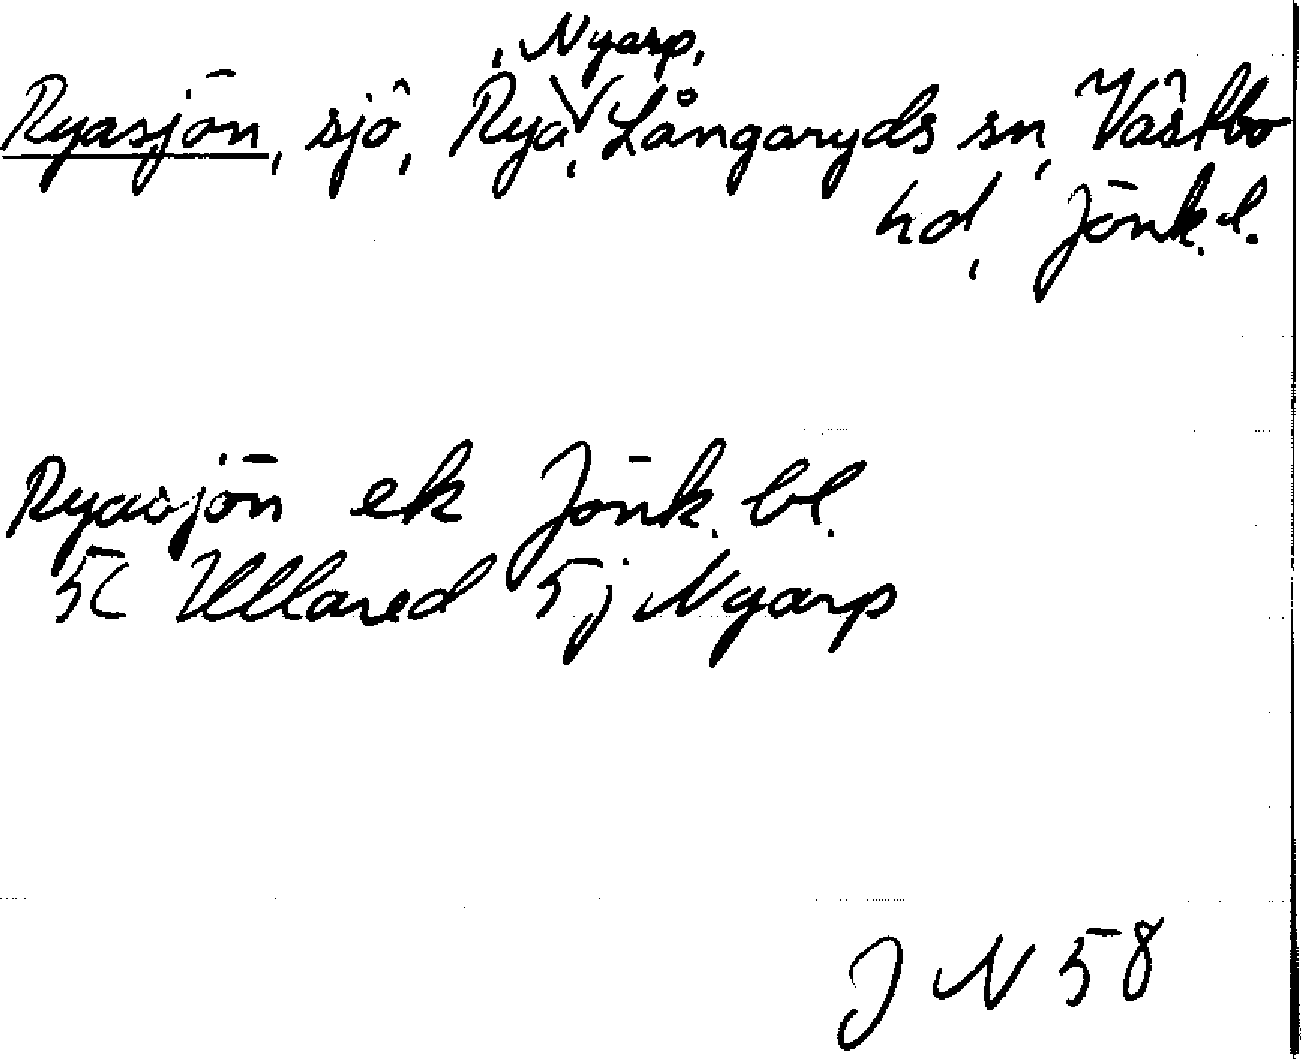 , Nyarp,
Ryasjön, sjö, Rya, Långaryds sn, Västbo
hd, Jönk.l.
Ryasjön ek Jönk. bl.
5C Ullared 5j Nyarp
J N 58